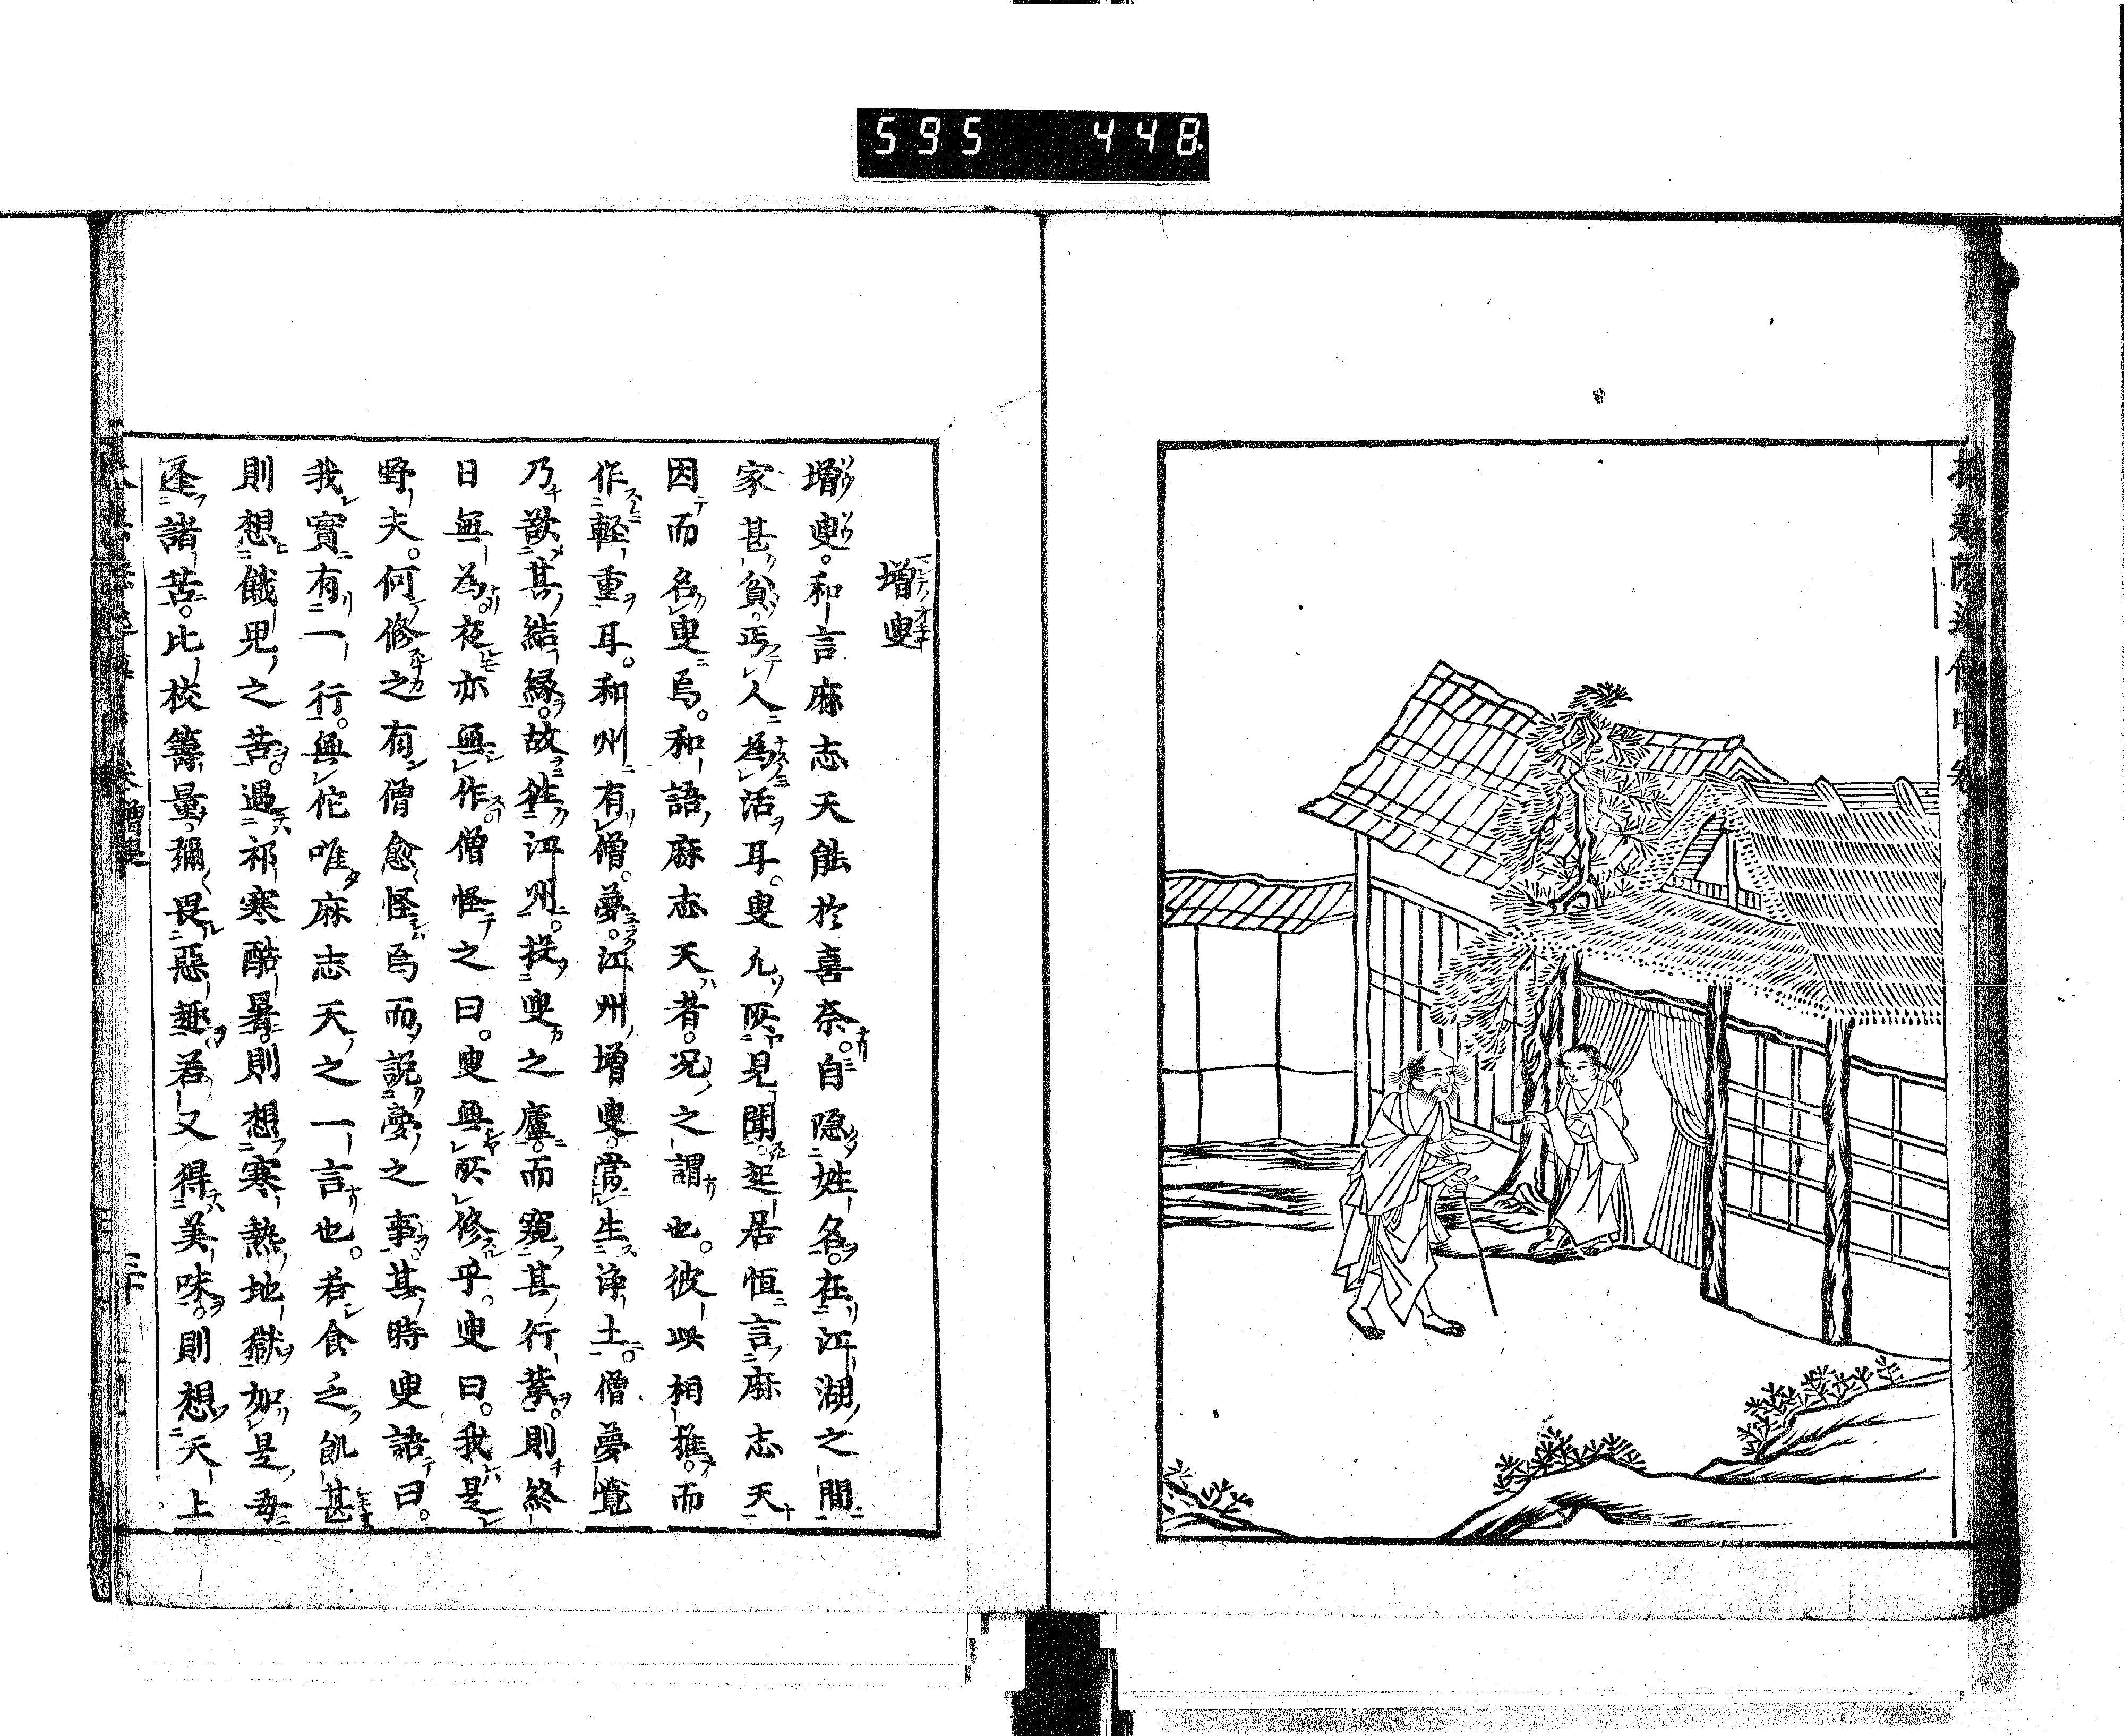 595 448
増叟
増叟。和言麻志天能於喜奈。自隠姓名。在江湖之間
家甚貧。丐人為活耳。叟凢所見聞。起居恒言麻志天
因而名叟焉。和語麻志天者。况之謂也。彼此相推。而
作軽重耳。和州有僧。夢。江州増叟。當生浄土。僧夢覚
乃欲其結縁。故徃江州。投叟之廬。而窺其行業。則終
日無為。夜亦無作。僧怪之曰。叟無所修乎。叟曰。我是
野夫。何修之有。僧愈怪焉而説夢之事。其時叟語曰。
我實有一行。無佗唯麻志天之一言也。若食乏飢甚
則想餓鬼之苦。遇祁寒酷暑。則想寒熱地獄。如是毎
逢諸苦。比校籌量。彌畏惡趣。若又得美味。則想天上
増叟
三十